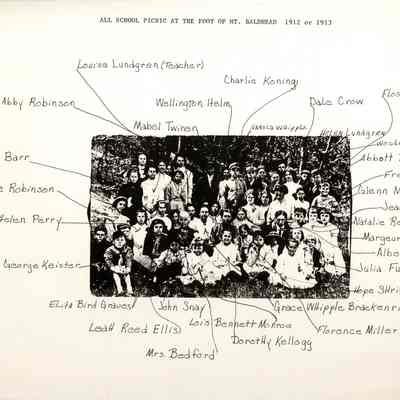 ALL SCHOOL PICNIC AT THE FOOT OF MT. BALDHEAD 1912 or 1913
Louisa Lundgren (Teacher)
Charlie Koning
Abby Robinson
Wellington Helm
Dale Crow
Mabel Twinen
Helen Lundgren
Barr
Abbott
Robinson
Glenn
Helen Perry
Natalie
George Keister
Julia
Hope
Elita Bird Graves
John Snay
Grace Whipple
Leah Reed Ellis
Lois Bennett Monroe
Florence Miller
Dorothy Kellogg
Mrs. Bedford